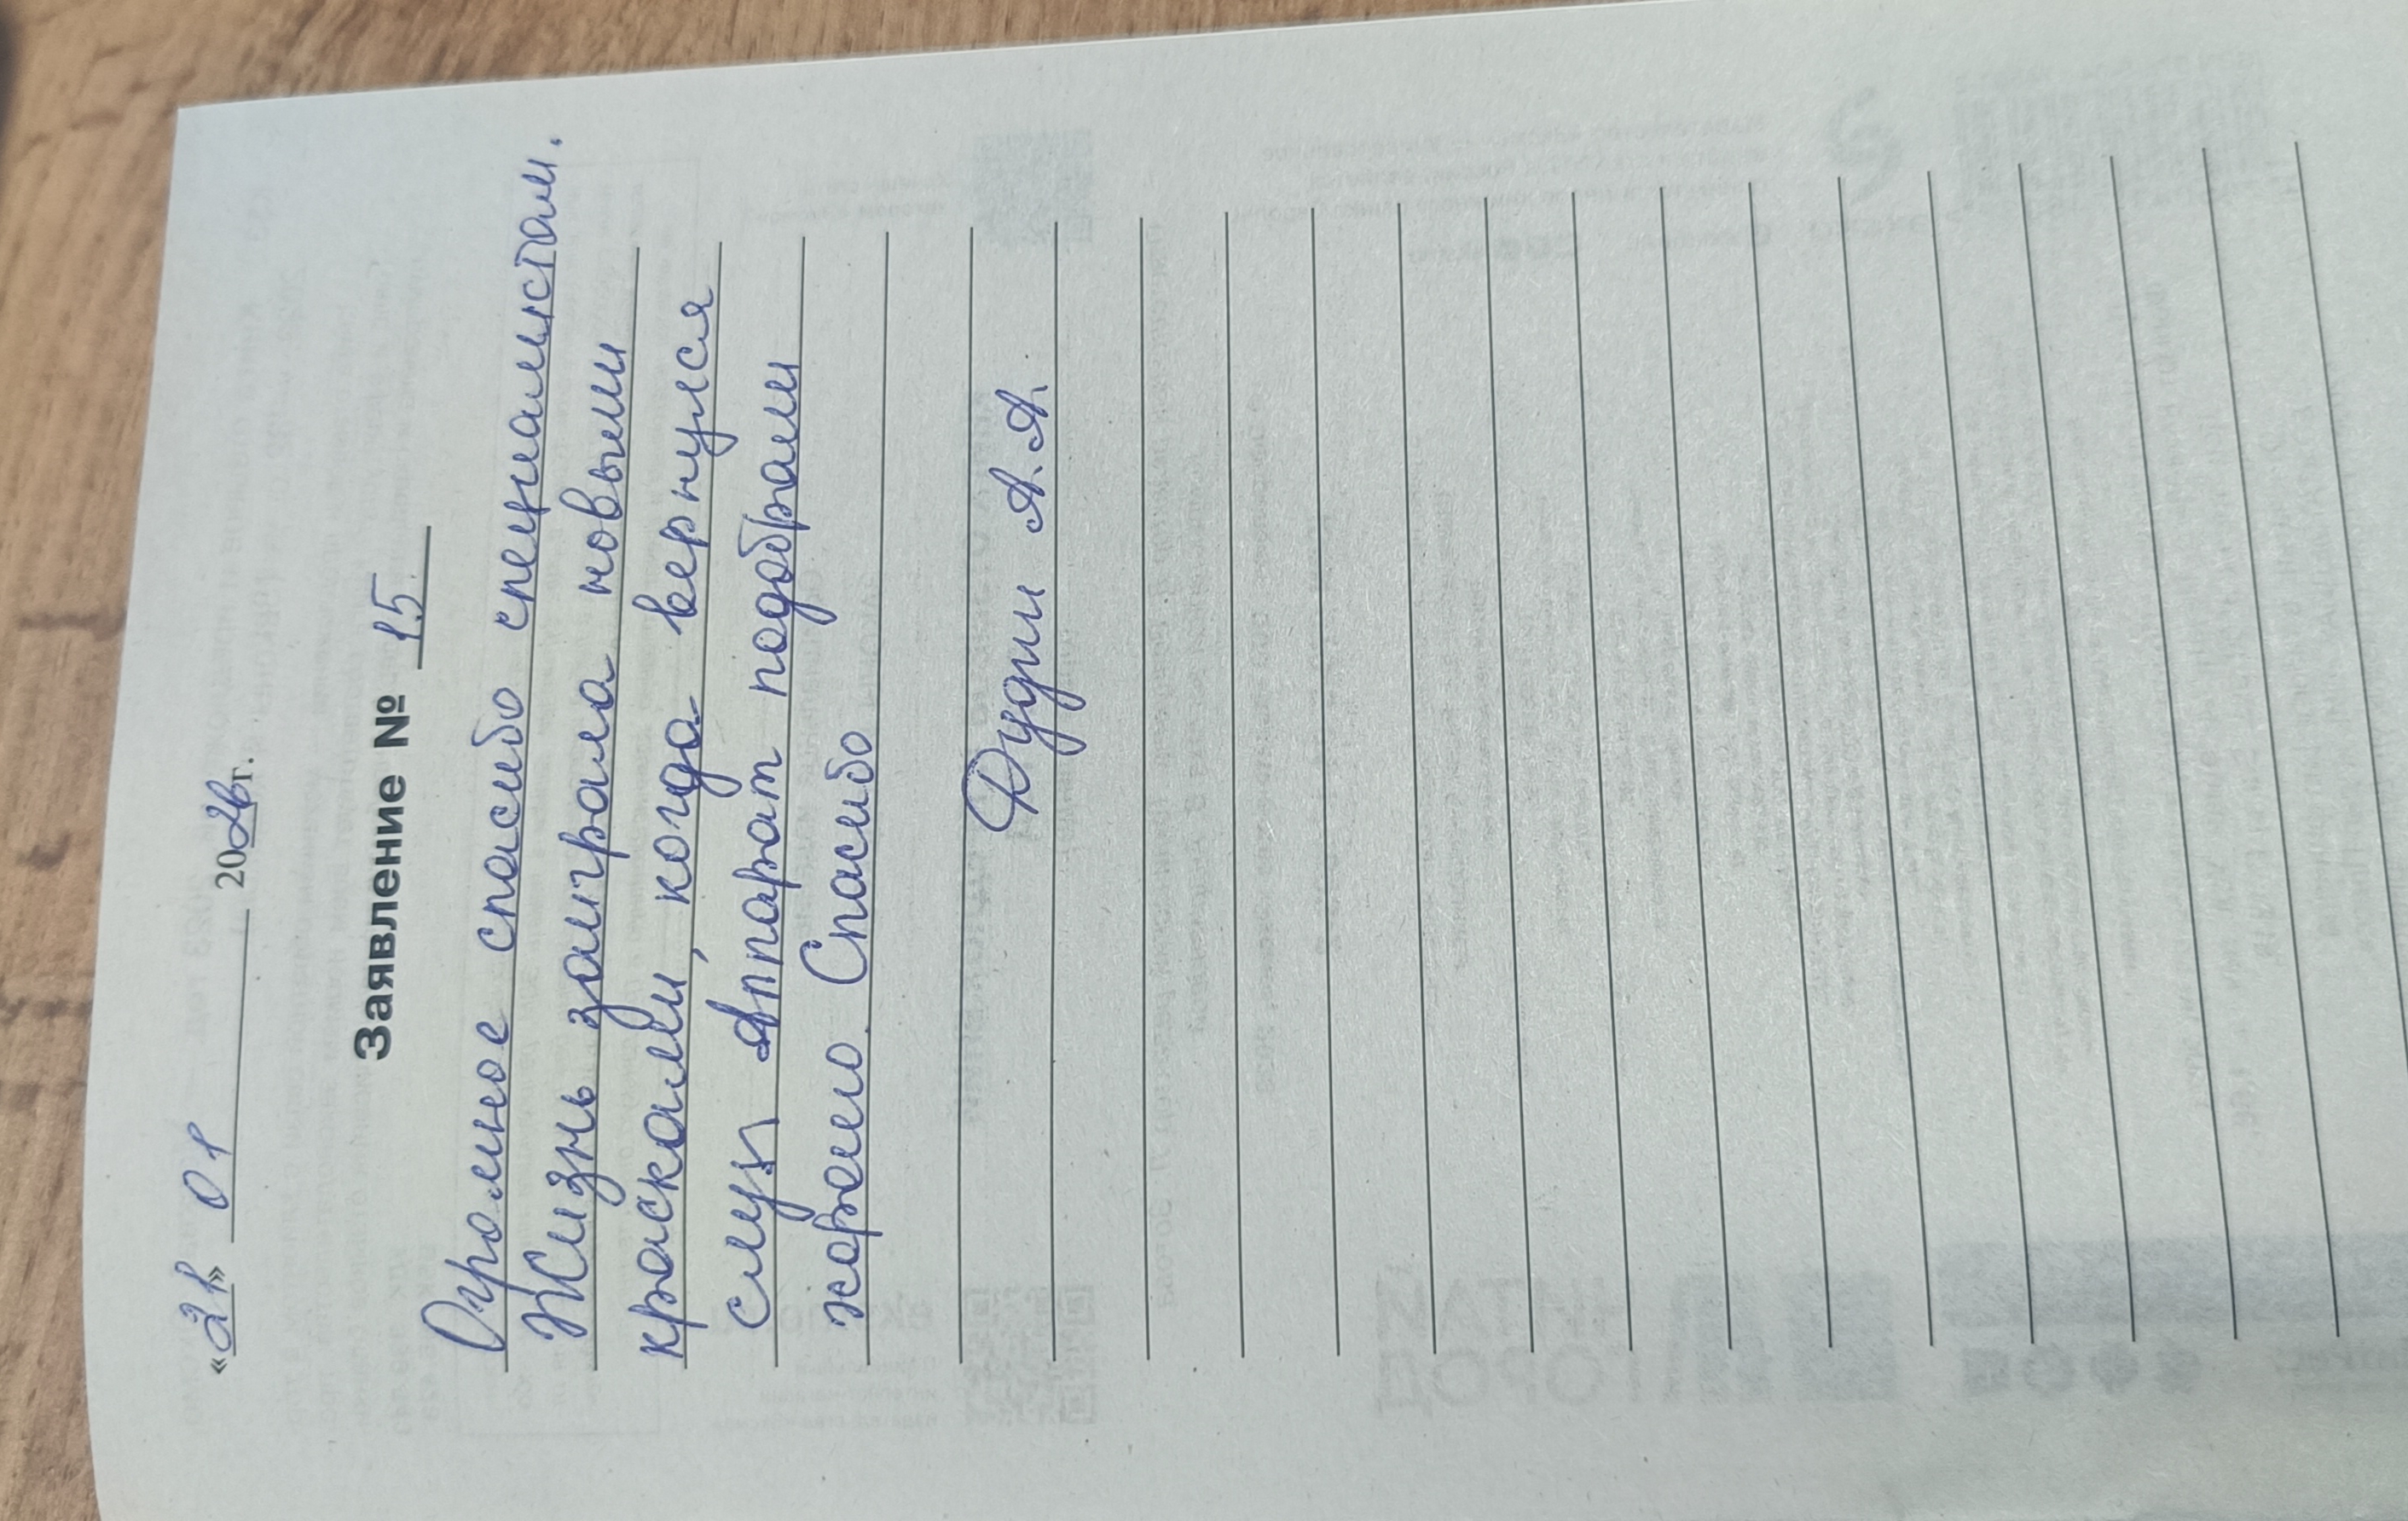 «21» 01 2026г.
Заявление № 15
Огромное спасибо специалистам.
Жизнь заиграла новыми
красками, когда вернулся
слух. Аппарат подобрали
хорошо. Спасибо
Дудин А.А.